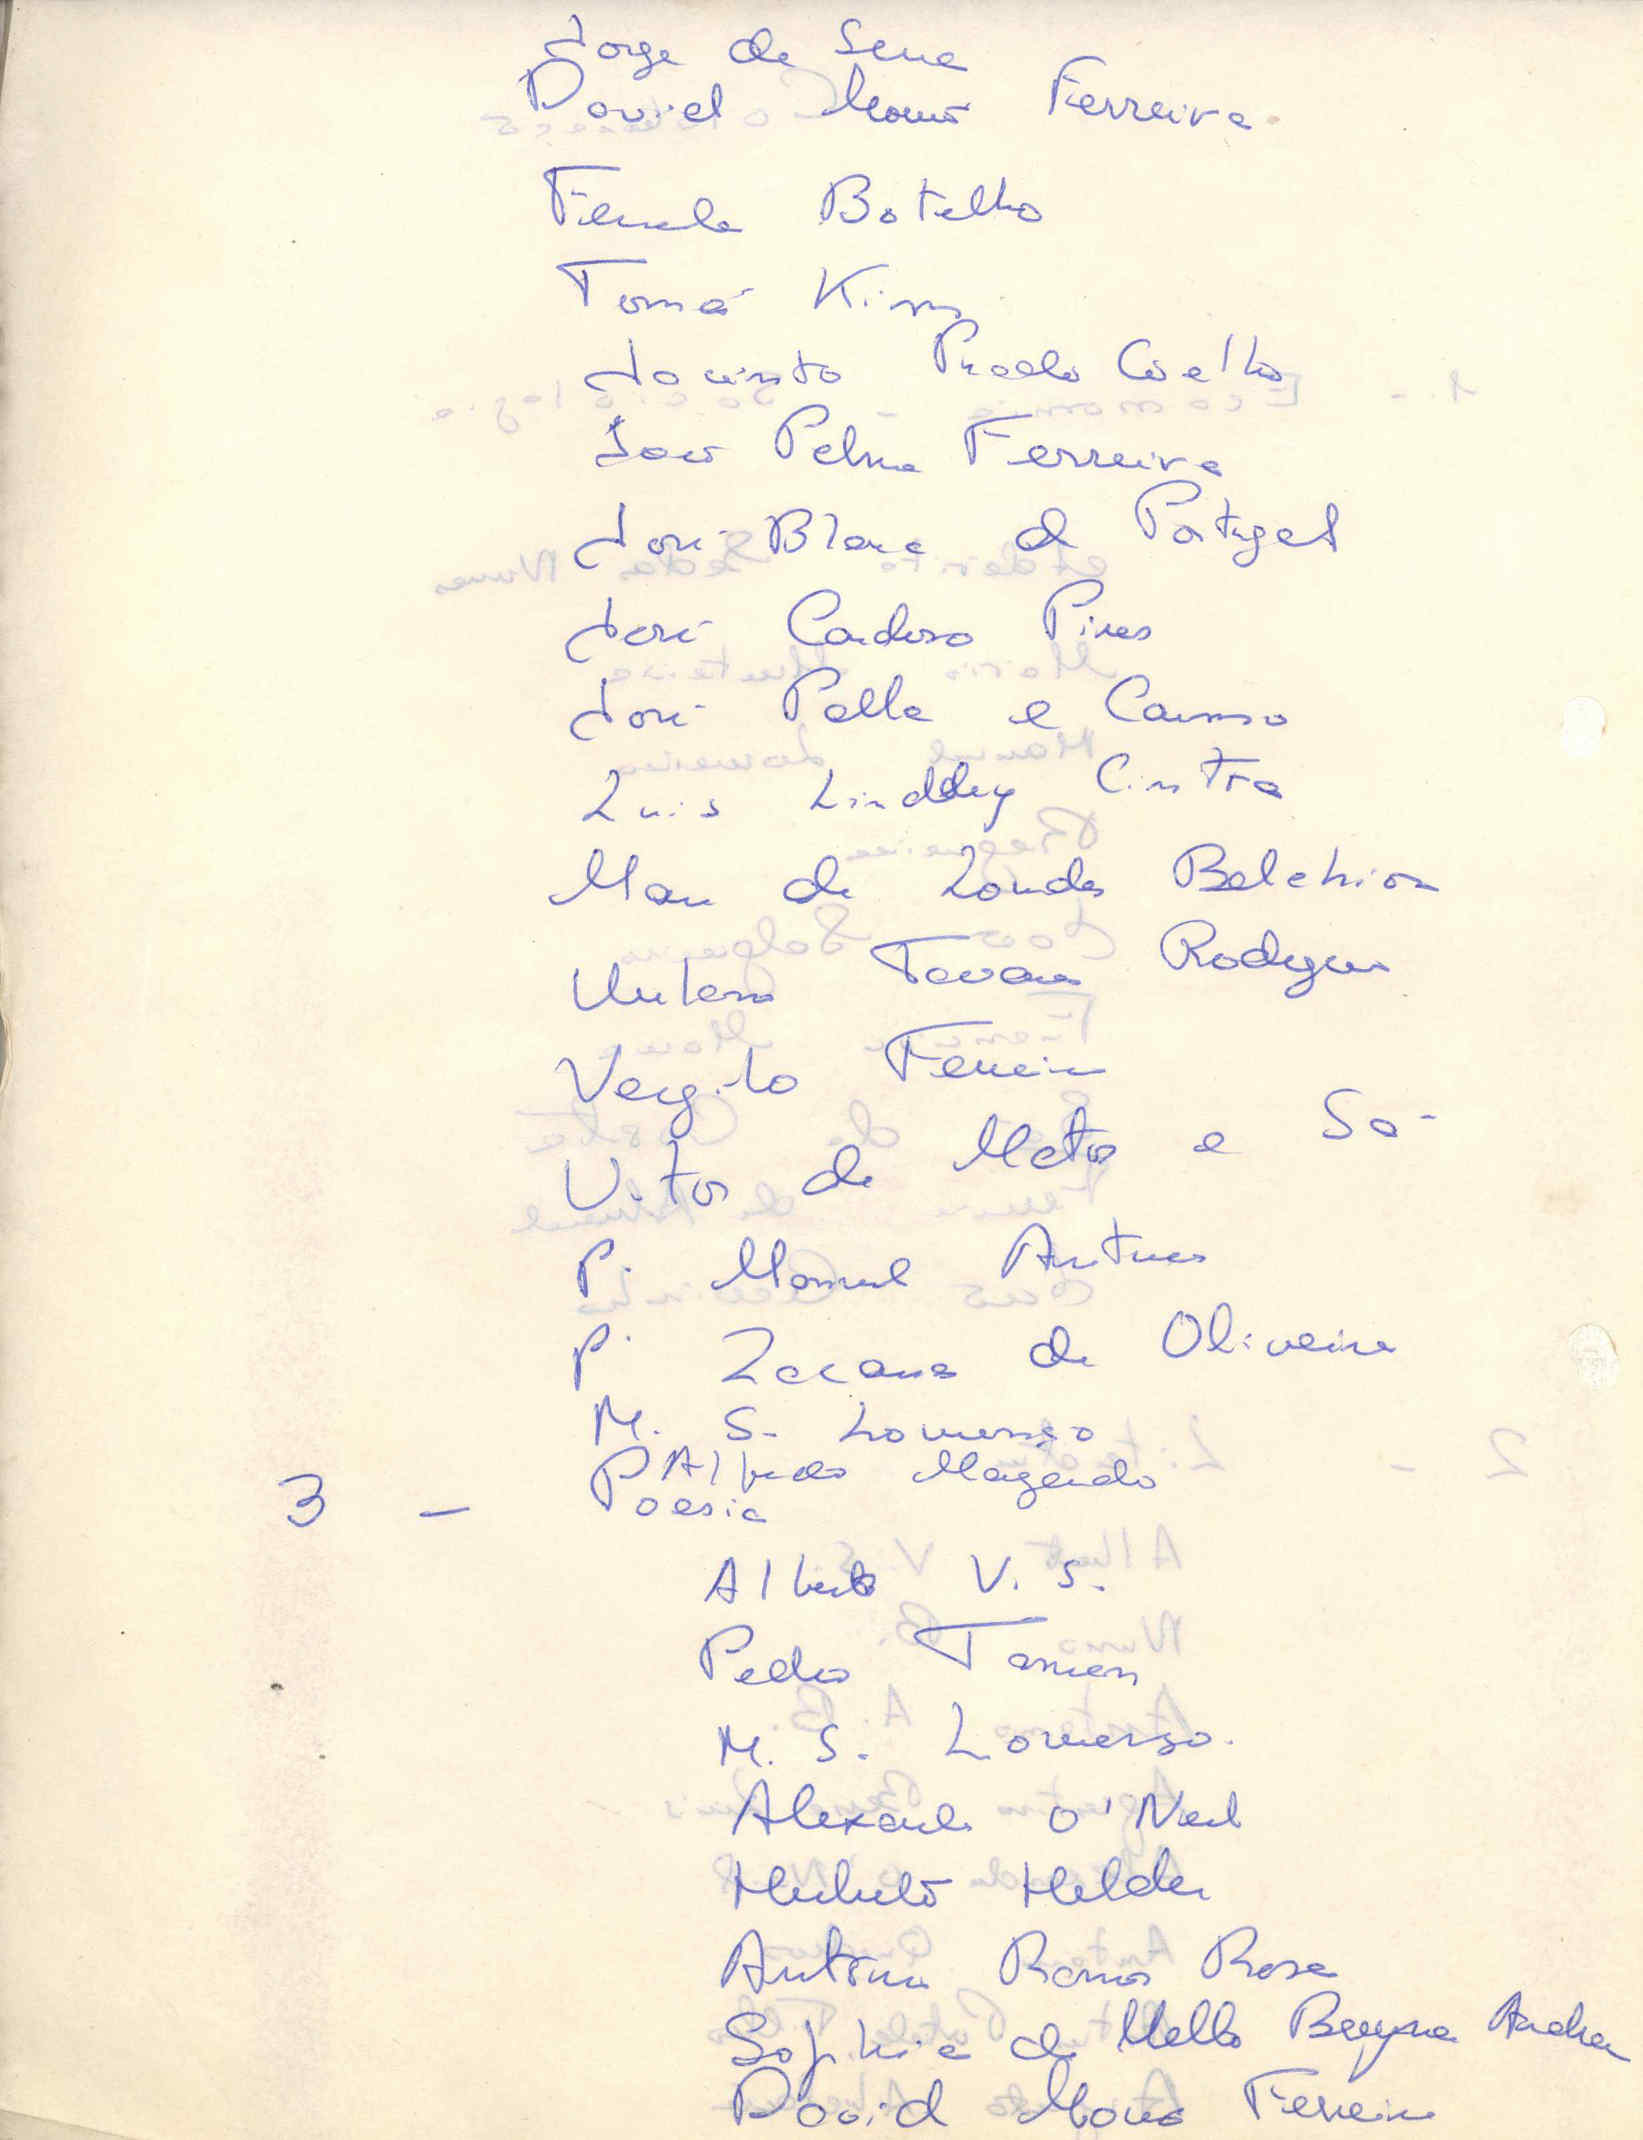 Jorge de Sena
David Mourão Ferreira
Fernanda Botelho
Tomás Kim
Jacinto Prado Coelho
João Palma Ferreira
José Blanc de Portugal
José Cardoso Pires
José Palla e Carmo
Luis Lindley Cintra
Maria de Lourdes Belchior
Urbano Tavares Rodrigues
Vergílio Ferreira
Vitor de Matos e Sá
P. Manuel Antunes
P. Zacarias de Oliveira
M. S. Lourenço
Alfredo Margarido
3 - Poesia
Alberto V. S.
Pedro Tamen
M. S. Lourenço.
Alexandre O'Neil
Herberto Helder
António Ramos Rosa
Sophia de Mello Breyner Andresen
David Mourão Ferreira